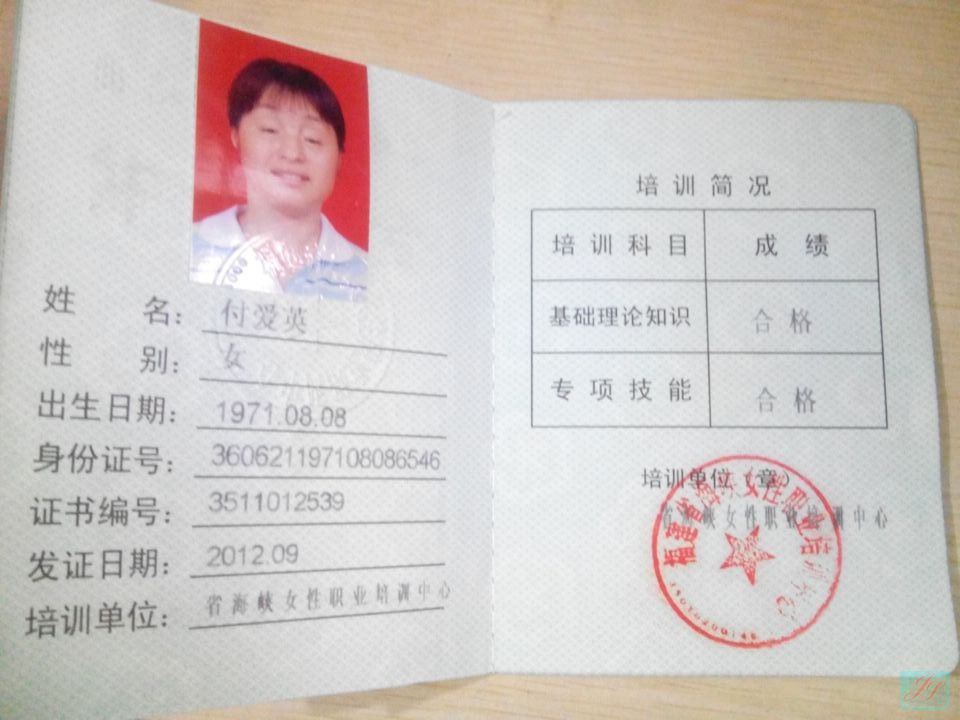 姓 名: 付爱英
性 别: 女
出生日期: 1971.08.08
身份证号: 360621197108086546
证书编号: 3511012539
发证日期: 2012.09
培训单位: 省海峡女性职业培训中心
培训简况
培训科目 成绩
基础理论知识 合格
专项技能 合格
培训单位（章）
省海峡女性职业培训中心
福建省海峡女性职业培训中心